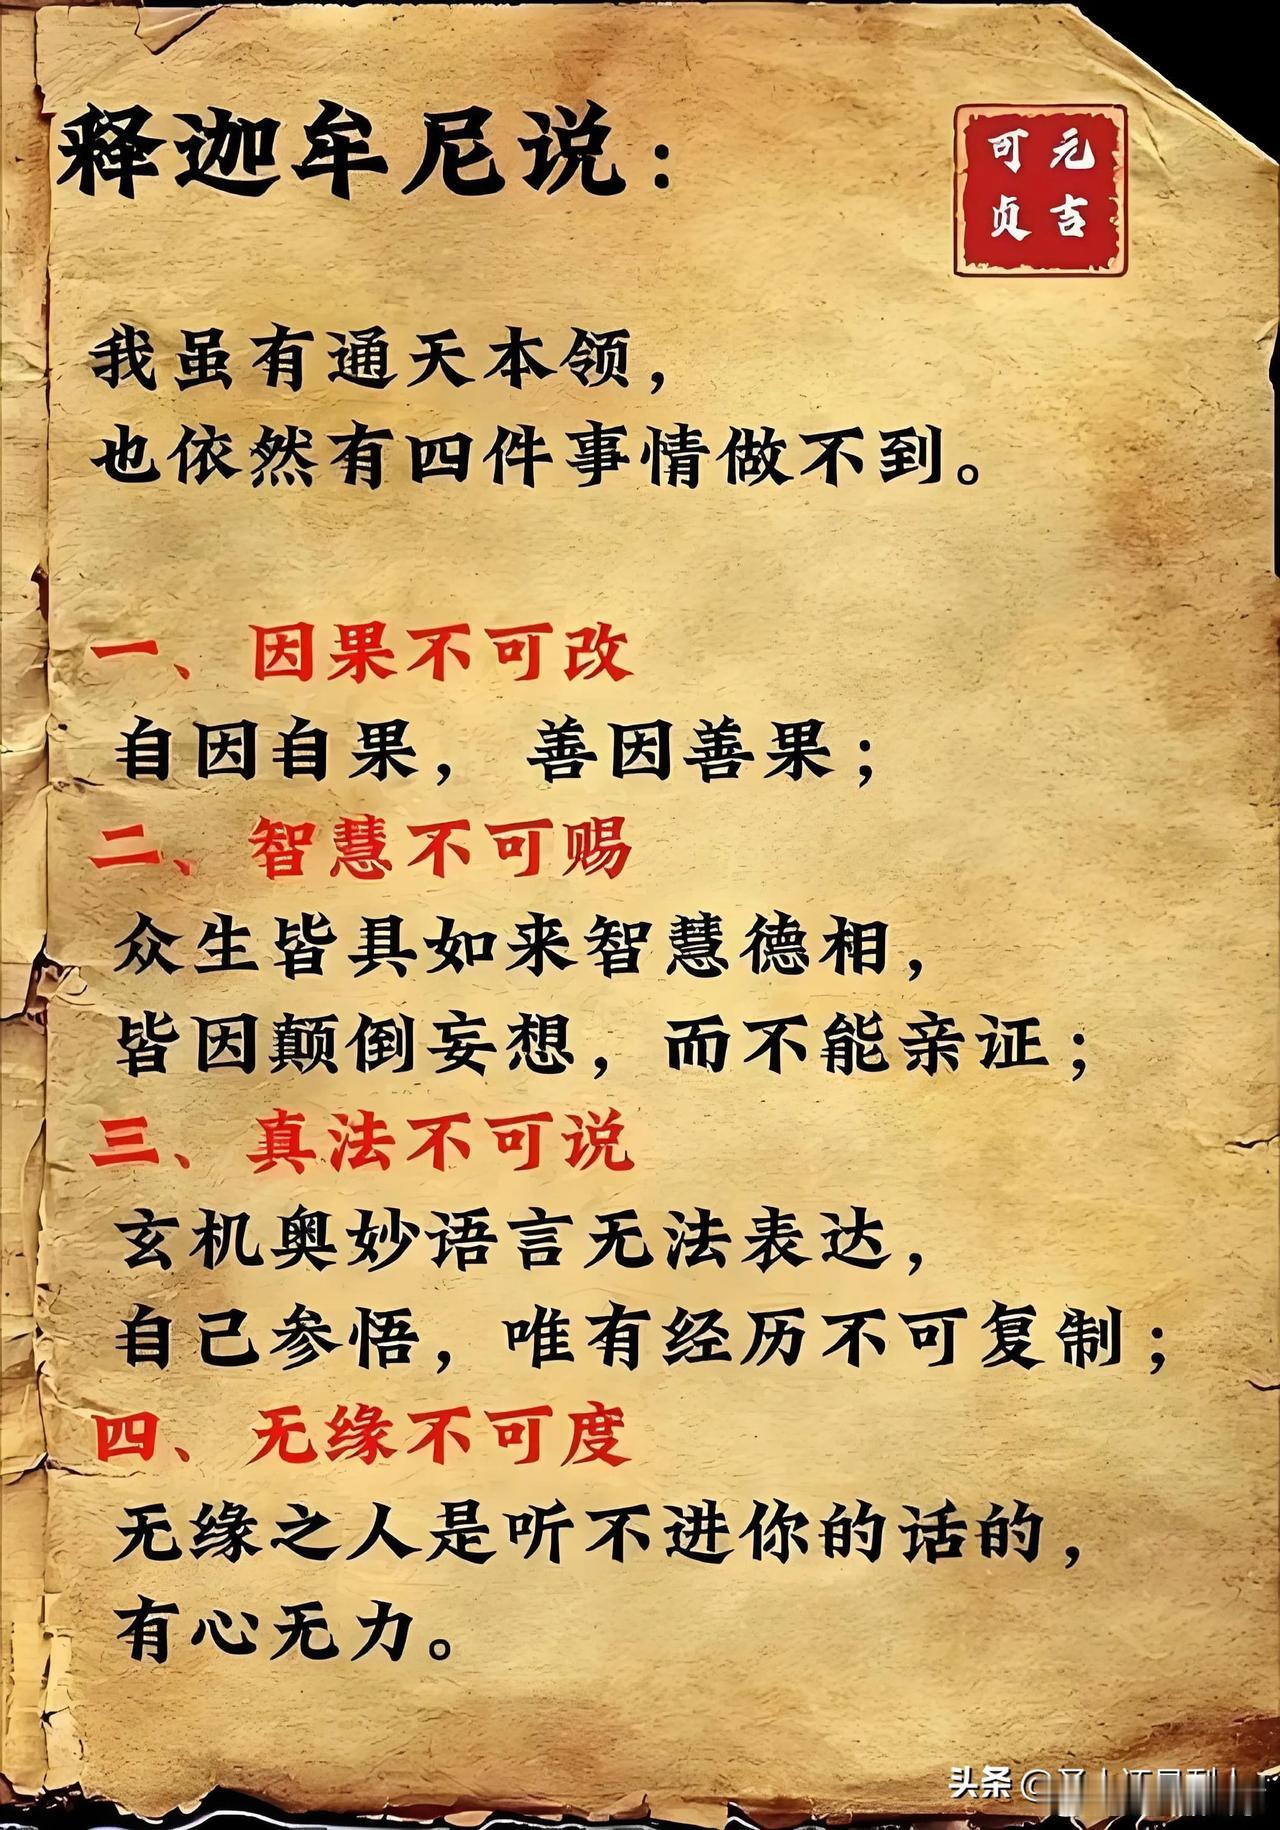 释迦牟尼说：
元吉
可贞
我虽有通天本领，
也依然有四件事情做不到。
一、因果不可改
自因自果，善因善果；
二、智慧不可赐
众生皆具如来智慧德相，
皆因颠倒妄想，而不能亲证；
三、真法不可说
玄机奥妙语言无法表达，
自己参悟，唯有经历不可复制；
四、无缘不可度
无缘之人是听不进你的话的，
有心无力。
头条@